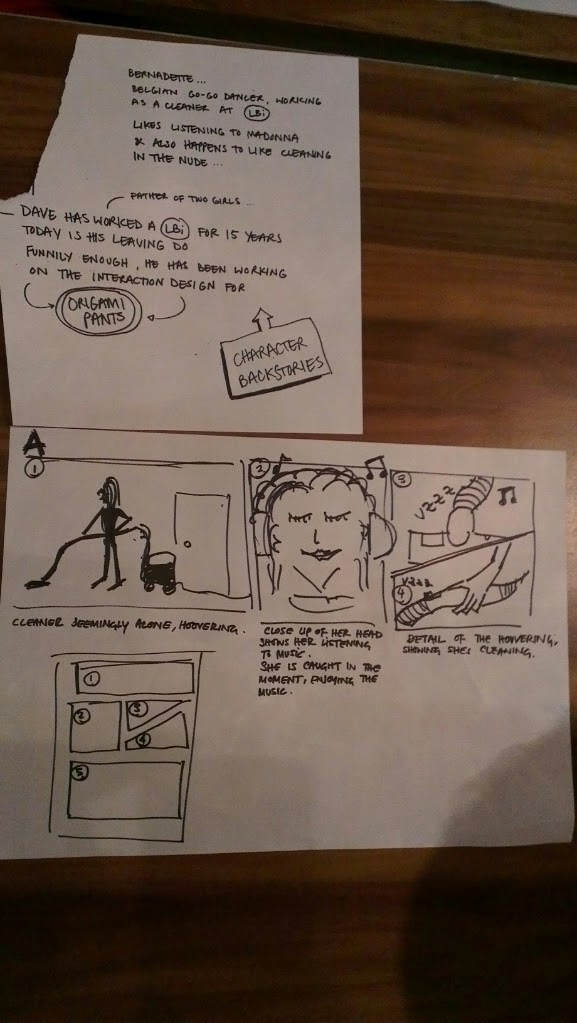 BERNADETTE...
BELGIAN GO-GO DANCER, WORKING
AS A CLEANER AT LBi
LIKES LISTENING TO MADONNA
& ALSO HAPPENS TO LIKE CLEANING
IN THE NUDE...
FATHER OF TWO GIRLS...
DAVE HAS WORKED A LBi FOR 15 YEARS
TODAY IS HIS LEAVING DO
FUNNILY ENOUGH, HE HAS BEEN WORKING
ON THE INTERACTION DESIGN FOR
ORIGAMI
PANTS
CHARACTER
BACKSTORIES
A
1
2
3
VZZZ
4
VZZZ
CLEANER SEEMINGLY ALONE, HOOVERING.
CLOSE UP OF HER HEAD
SHOWS HER LISTENING
TO MUSIC.
SHE IS CAUGHT IN THE
MOMENT, ENJOYING THE
MUSIC.
DETAIL OF THE HOOVERING,
SHOWING SHE'S CLEANING.
1
2
3
4
5